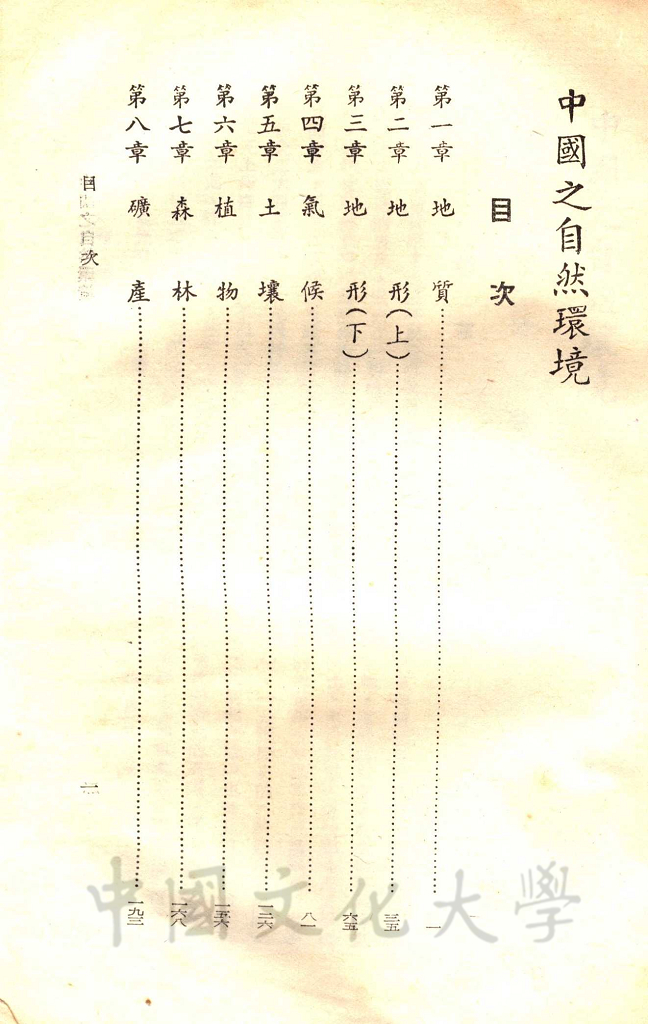 中國之自然環境
目次
第一章 地質……一
第二章 地形(上)……三五
第三章 地形(下)……六五
第四章 氣候……八一
第五章 土壤……一二六
第六章 植物……一五六
第七章 森林……一六八
第八章 礦產……一九三
目次
一
中國文化大學